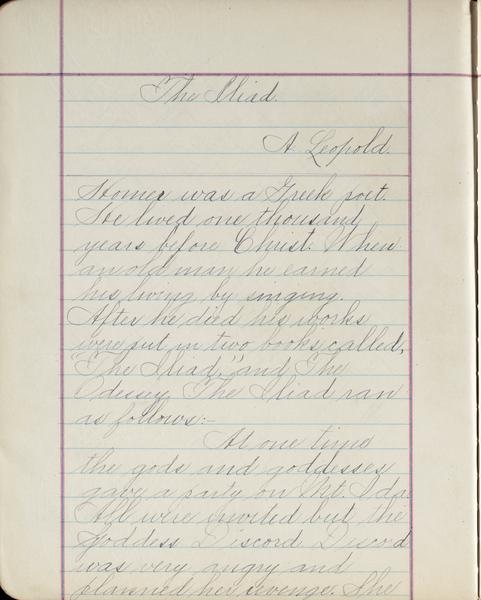 The Iliad.
A Leopold.
Homer was a Greek poet.
He lived one thousand
years before Christ. When
an old man he earned
his living by singing.
After he died his works
were put in two books called,
"The Iliad," and The
Odessey. The Iliad ran
as follows:-
At one time
the gods and goddesses
gave a party on Mt. Ida.
All were invited but the
goddess Discord. Discord
was very angry and
planned her revenge. She